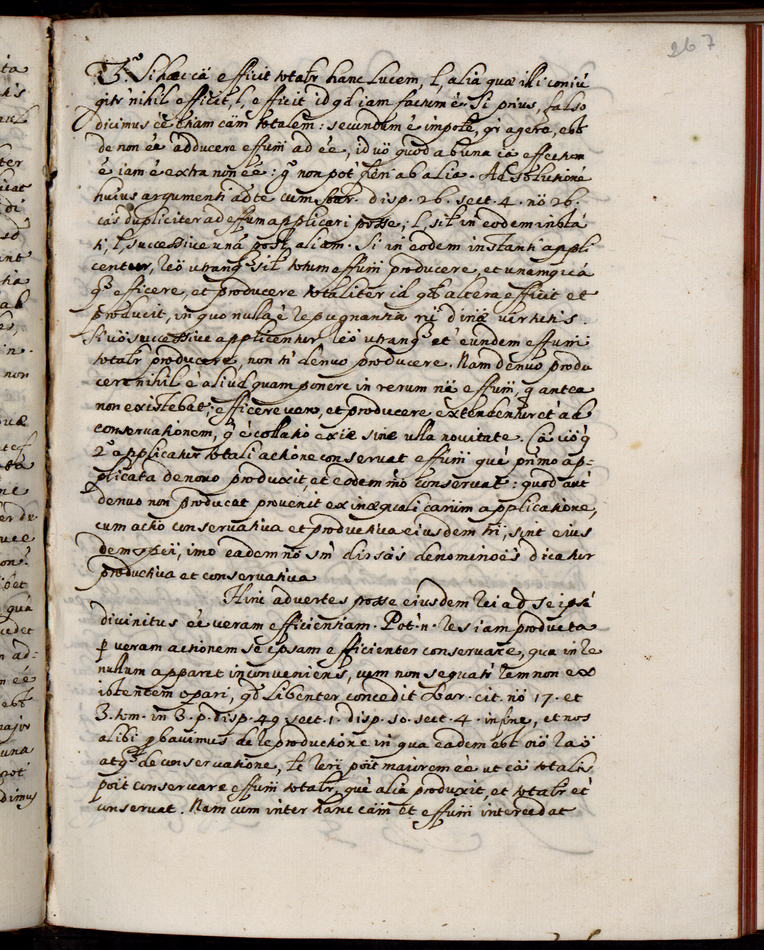 267
3.º Si hæc cã efficit totalr hanc lucem, l, alia quæ illi coniũ
gitr nihil efficit, l, efficit id qd iam factum ẽ. Si prius, falso
dicimus eẽ etiam cãm totalem: secundum ẽ impole, qr agere, est
de non eẽ adducere effum ad eẽ, id uõ quod ab una cã effectum
ẽ iam ẽ extra non eẽ: gº non pot fieri ab alia. Ad solutionẽ
huius argumenti adte cum Suar. disp. 26. sect. 4. nõ 26.
cãs dupliciter ad effum applicari posse, l, sil in eodem instã
ti, l, successiue unã post aliam. Si in eodem instanti appli
centur, leõ utranqs sil totum effum producere, et unamquã
qs efficere, et producere totaliter id qd altera efficit et
producit, in quo nulla ẽ repugnantia rõ diuinæ uirtutis.
Si uõ successiue applicentur, leõ utranqs et eundem effum
totalr producere, non tn denuo producere. Nam denuo produ
cere nihil ẽ aliud quam ponere in rerum nã effum, q antea
non existebat; efficere uero, et producere extendentur et ad
conseruationem, q ẽ collatio exiæ sine ulla nouitate. Cã uõ q
2º applicatur totali actione conseruat effum quẽ primo ap=
plicata de nouo produxit, et eodem mõ conseruat: quod aut
denuo non producat prouenit ex inæquali carum applicatione,
cum actio conseruatiua et productiua eiusdem rei, sint eius
dem spei, imo eadem nõ sm diuersas denominões dicatur
productiua et conseruatiua
Hinc aduertes posse eiusdem rei ad se ipsã
diuinitus eẽ ueram efficientiam. Pot. n. res iam producta
p ueram actionem se ipsam efficienter conseruare, qua in re
nullum apparet inconueniens, cum non sequatr rem non ex
istentem opari, qd libenter concedit Suar. cit. nõ 17. et
3. tom. in 3. p. disp. 49 sect. 1. disp. 50. sect. 4. in fine, et nos
alibi pbauimus de reproductione in qua eadem est oiõ raõ
atqs de conseruatione,
poit conseruare effum totalr, quẽ alia produxit, et totalr et
conseruat. Nam cum inter hanc cãm et effum intercedat